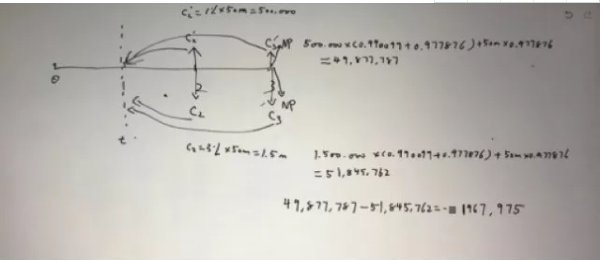 C₂' = 1% × 50m = 500.000
C₂'
C₃' NP
500.000 × (0.990099 + 0.977876) + 50m × 0.977876
= 49,877,787
0
t
C₂
C₃
NP
C₂ = 3% × 50m = 1.5m
1.500.000 × (0.990099 + 0.977876) + 50m × 0.977876
= 51,845,762
49,877,787 - 51,845,762 = - 1967,975